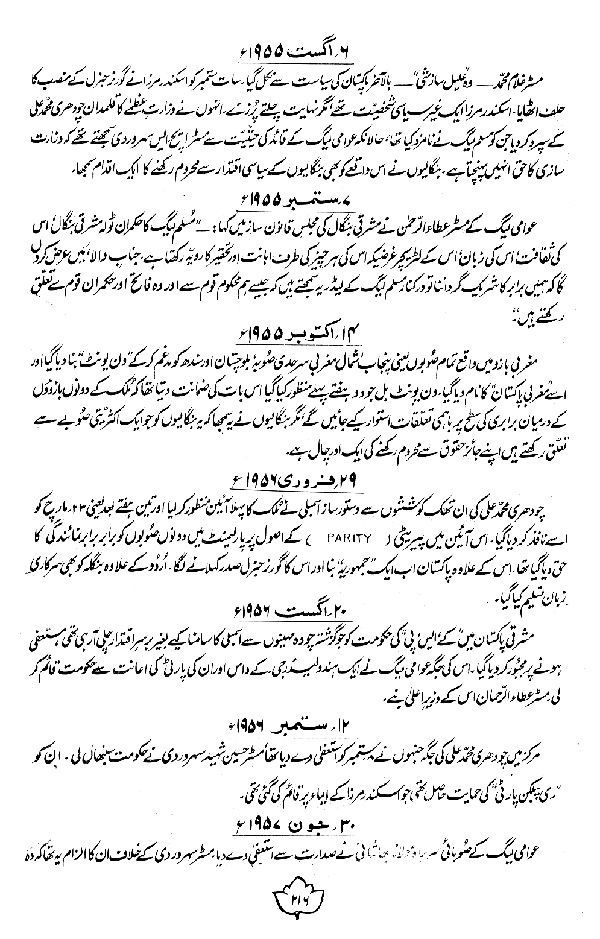 ۶؍ اگست ۱۹۵۵ء
مسٹر غلام محمد — وہ علیل سازشی — بالآخر پاکستان کی سیاست سے نکل گیا۔ سات ستمبر کو اسکندر مرزا نے گورنر جنرل کے منصب کا
حلف اٹھایا۔ اسکندر مرزا ایک غیر سیاسی شخصیت تھے مگر نہایت چلتے پُرزے۔ انھوں نے وزارتِ عظمٰے کا قلمدان چودھری محمد علی
کے سپرد کر دیا جن کو مسلم لیگ نے نامزد کیا تھا، حالانکہ عوامی لیگ کے قائد کی حیثیت سے مسٹر ایچ ایس سہروردی سمجھتے تھے کہ وزارت
سازی کا حق انہیں پہنچتا ہے۔ بنگالیوں نے اس واقعے کو بھی بنگالیوں کے سیاسی اقتدار سے محروم رکھنے کا ایک اقدام سمجھا۔
۷؍ ستمبر ۱۹۵۵ء
عوامی لیگ کے مسٹر عطاء الرحمٰن نے مشرقی بنگال کی مجلس قانون ساز میں کہا: — "مسلم لیگ کا حکمران ٹولہ مشرقی بنگال، اس
کی ثقافت، اس کی زبان، اس کے لٹریچر غرضیکہ اس کی ہر چیز کی طرف اہانت اور تحقیر کا رویہ رکھتا ہے، جناب والا! میں عرض کروں
گا کہ ہمیں برابر کا شریک گرداننا تو درکنار مسلم لیگ کے لیڈر یہ سمجھتے ہیں کہ جیسے ہم محکوم قوم سے اور وہ فاتح اور حکمران قوم سے تعلق
رکھتے ہیں"
۱۴؍ اکتوبر ۱۹۵۵ء
مغربی بازو میں واقع تمام صوبوں یعنی پنجاب، شمال مغربی سرحدی صوبہ، بلوچستان اور سندھ کو مدغم کر کے "ون یونٹ" بنا دیا گیا اور
اسے "مغربی پاکستان" کا نام دیا گیا۔ ون یونٹ بل جو دو ہفتے پہلے منظور کیا گیا اس بات کی ضمانت دیتا تھا کہ ملک کے دونوں بازوؤں
کے درمیان برابری کی سطح پر باہمی تعلقات استوار کیے جائیں گے مگر بنگالیوں نے یہ سمجھا کہ یہ بنگالیوں کو جو ایک اکثریتی صوبے سے
تعلق رکھتے ہیں اپنے جائز حقوق سے محروم رکھنے کی ایک اور چال ہے۔
۲۹؍ فروری ۱۹۵۶ء
چودھری محمد علی کی ان تھک کوششوں سے دستور ساز اسمبلی نے ملک کا پہلا آئین منظور کر لیا اور تین ہفتے بعد یعنی ۲۳؍ مارچ کو
اسے نافذ کر دیا گیا۔ اس آئین میں پیریٹی (PARITY) کے اصول پر پارلیمنٹ میں دونوں صوبوں کو برابر برابر نمائندگی کا
حق دیا گیا تھا۔ اس کے علاوہ پاکستان اب ایک "جمہوریہ" بنا اور اس کا گورنر جنرل صدر کہلانے لگا۔ اُردو کے علاوہ بنگلہ کو بھی سرکاری
زبان تسلیم کیا گیا۔
۲۰؍ اگست ۱۹۵۶ء
مشرقی پاکستان میں "کے ایس پی" کی حکومت کو جو گزشتہ چودہ مہینوں سے اسمبلی کا سامنا کیے بغیر برسرِ اقتدار چلی آرہی تھی مستعفی
ہونے پر مجبور کر دیا گیا۔ اس کی جگہ عوامی لیگ نے ایک ہندو لیڈر جی کے داس اور ان کی پارٹی کی اعانت سے حکومت قائم کر
لی۔ مسٹر عطاء الرحمان اس کے وزیر اعلیٰ بنے۔
۱۲؍ ستمبر ۱۹۵۶ء
مرکز میں چودھری محمد علی کی جگہ جنہوں نے ستمبر کو استعفیٰ دے دیا تھا مسٹر حسین شہید سہروردی نے حکومت سنبھال لی۔ ان کو
"ری پبلکن پارٹی" کی حمایت حاصل تھی جو اسکندر مرزا کے ایماء پر قائم کی گئی تھی۔
۳۰؍ جون ۱۹۵۷ء
عوامی لیگ کے صوبائی بھاشانی نے صدارت سے استعفیٰ دے دیا۔ مسٹر سہروردی کے خلاف ان کا الزام یہ تھا کہ وہ
۲۱۶